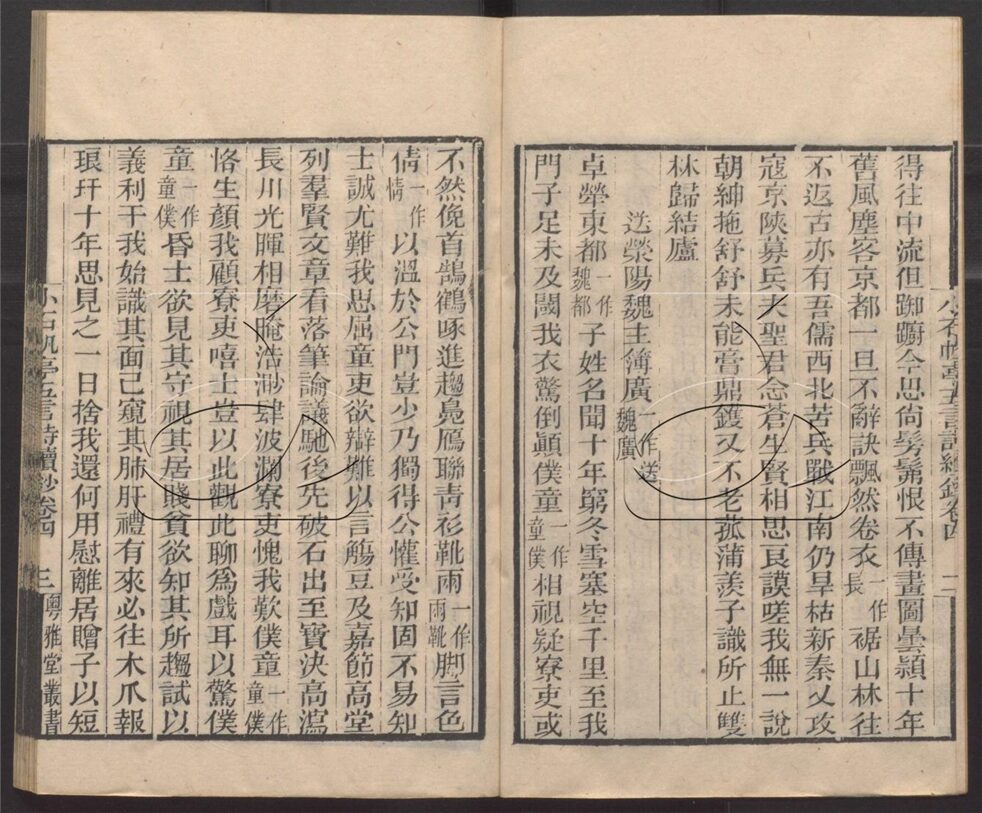 得往中流但踟躕今思尙髣髴恨不傳畫圖曇潁十年
舊風塵客京都一旦不辭訣飄然卷衣一作長裾山林往
不返古亦有吾儒西北苦兵戰江南仍旱枯新秦又攻
寇京陝募兵夫聖君念蒼生賢相思良謨嗟我無一說
朝紳拖舒舒未能嘗鼎鑊又不老菰蒲羨子識所止雙
林歸結廬
送滎陽魏主簿廣一作送魏廣
卓犖東都一作魏都子姓名聞十年窮冬雪塞空千里至我
門子足未及閾我衣驚倒顚僕童一作童僕相視疑寮吏或
小石帆亭五言詩續鈔卷四 二
不然俛首鵠鶴啄進趨鳧鴈聯靑衫靴兩一作兩靴脚言色
倩一作情以溫於公門豈少乃獨得公懽受知固不易知
士誠尤難我思屈童吏欲辯難以言觴豆及嘉節高堂
列羣賢文章看落筆論議馳後先破石出至寶決高瀉
長川光暉相磨晻浩渺肆波瀾寮吏愧我歎僕童一作童僕
恪生顏我顧寮吏嘻士豈以此觀此聊爲戲耳以驚僕
童一作童僕昏士欲見其守視其居賤貧欲知其所趨試以
義利干我始識其面已窺其肺肝禮有來必往木瓜報
琅玕十年思見之一日捨我還何用慰離居贈子以短
小石帆亭五言詩續鈔卷四 三 粵雅堂叢書